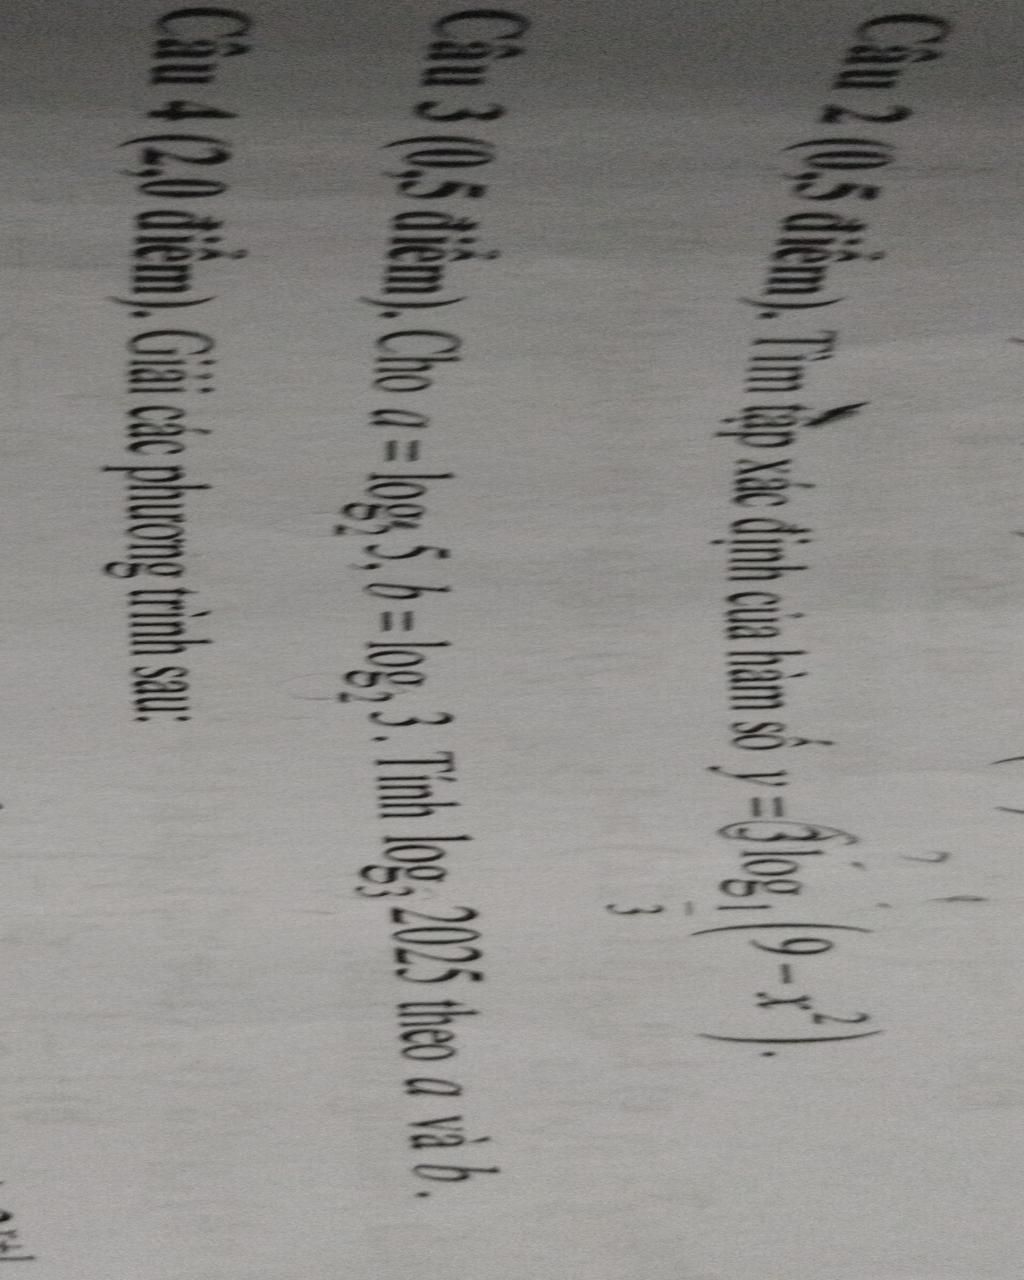 Câu 2 (0,5 điểm). Tìm tập xác định của hàm số y = 3log_{1/3}(9 − x²).
Câu 3 (0,5 điểm). Cho a = log₂ 5, b = log₂ 3. Tính log₃ 2025 theo a và b.
Câu 4 (2,0 điểm). Giải các phương trình sau: